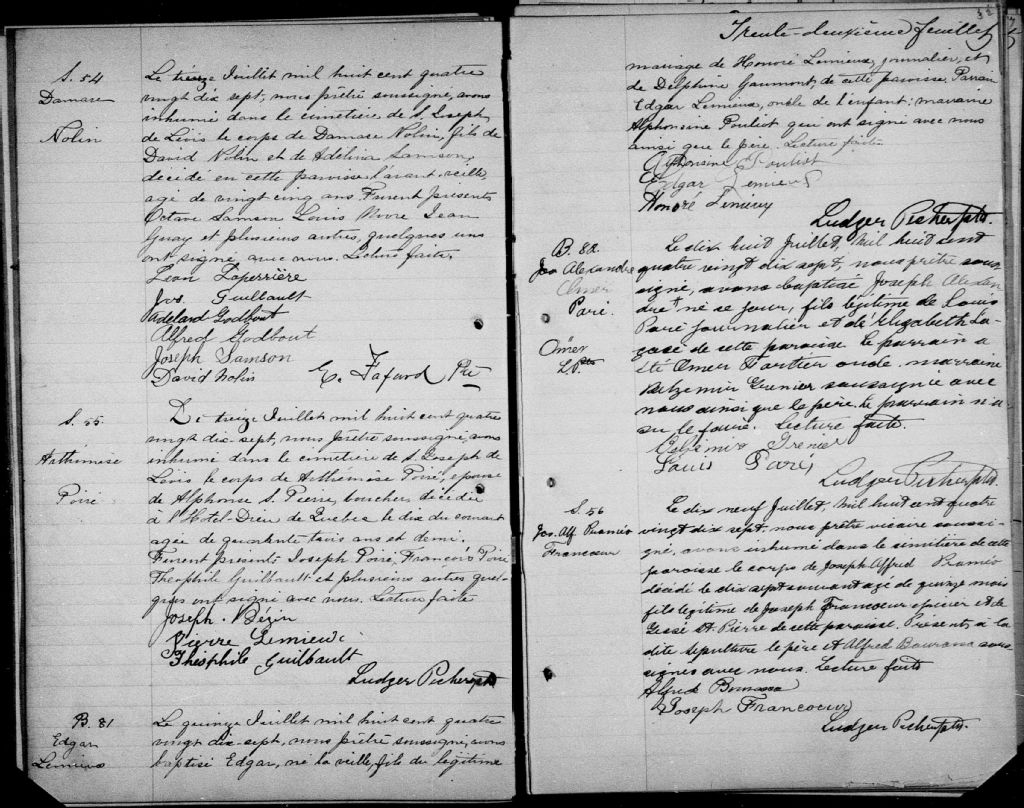 S. 54
Damase
Nolin
Le treize Juillet mil huit cent quatre
vingt dix sept, nous prêtre soussigné, avons
inhumé dans le cimetière de S. Joseph
de Lévis le corps de Damase Nolin, fils de
David Nolin et de Adelina Samson,
décédé en cette paroisse l'avant-veille
agé de vingt cinq ans. Furent présents
Octave Samson Louis Jean
Guay et plusieurs autres, quelques uns
ont signé avec nous. Lecture faite.
Léon Laperrière
Jos. Guilbault
Adelard Godbout
Alfred Godbout
Joseph Samson
David Nolin
E. Fafard Ptre
S. 55
Arthémise
Poiré
Le treize Juillet mil huit cent quatre
vingt dix-sept, nous prêtre soussigné, avons
inhumé dans le cimetière de S. Joseph de
Lévis le corps de Arthémise Poiré, epouse
de Alphonse S. Pierre, boucher, décédée
à l'Hotel-Dieu de Quebec le dix du courant
agée de quarante trois ans et demi.
Furent présents Joseph Poiré, François Poiré
Théophile Guilbault et plusieurs autres quel-
ques ont signé avec nous. Lecture faite
Joseph. Bégin
Pierre Lemieux
Théophile Guilbault
Ludger Picher ptre
B. 81
Edgar
Lemieux
Le quinze Juillet mil huit cent quatre
vingt dix-sept, nous prêtre soussigné, avons
baptisé Edgar, né la veille, fils du légitime
Trente-deuxième feuillet
mariage de Honoré Lemieux, journalier, et
de Delphine Gaumont, de cette paroisse. Parrain
Edgar Lemieux, oncle de l'enfant; marraine
Alphonsine Pouliot qui ont signé avec nous
ainsi que le père. Lecture faite.
Alphonsine Pouliot
Edgar Lemieux
Honoré Lemieux
Ludger Picher ptre.
B. 82
Jos Alexandre
Omer
Paré.
Omer
L.P. ptre
Le dix huit Juillet, mil huit cent
quatre vingt dix sept, nous prêtre sous-
signé, avons baptisé Joseph Alexan
dre né ce jour, fils légitime de Louis
Paré journalier et de Elizabeth La-
de cette paroisse. Le parrain a
été Omer Fortier oncle, marraine
Grenier soussignée avec
nous ainsi que le père. Le parrain n'a
su le faire. Lecture faite.
Grenier
Louis Paré
Ludger Picher ptre.
S. 56
Jos. Alf. Roméo
Francoeur
Le dix neuf Juillet, mil huit cent quatre
vingt dix sept, nous prêtre vicaire soussi-
gné, avons inhumé dans le cimitière de cette
paroisse le corps de Joseph Alfred Roméo
décédé le dix sept courant agé de quinze mois
fils légitime de Joseph Francoeur épicier et de
St. Pierre de cette paroisse. Présents à la
dite sépulture le père et Alfred Bourassa sous-
signés avec nous. Lecture faite
Alfred Bourassa
Joseph Francoeur
Ludger Picher ptre.